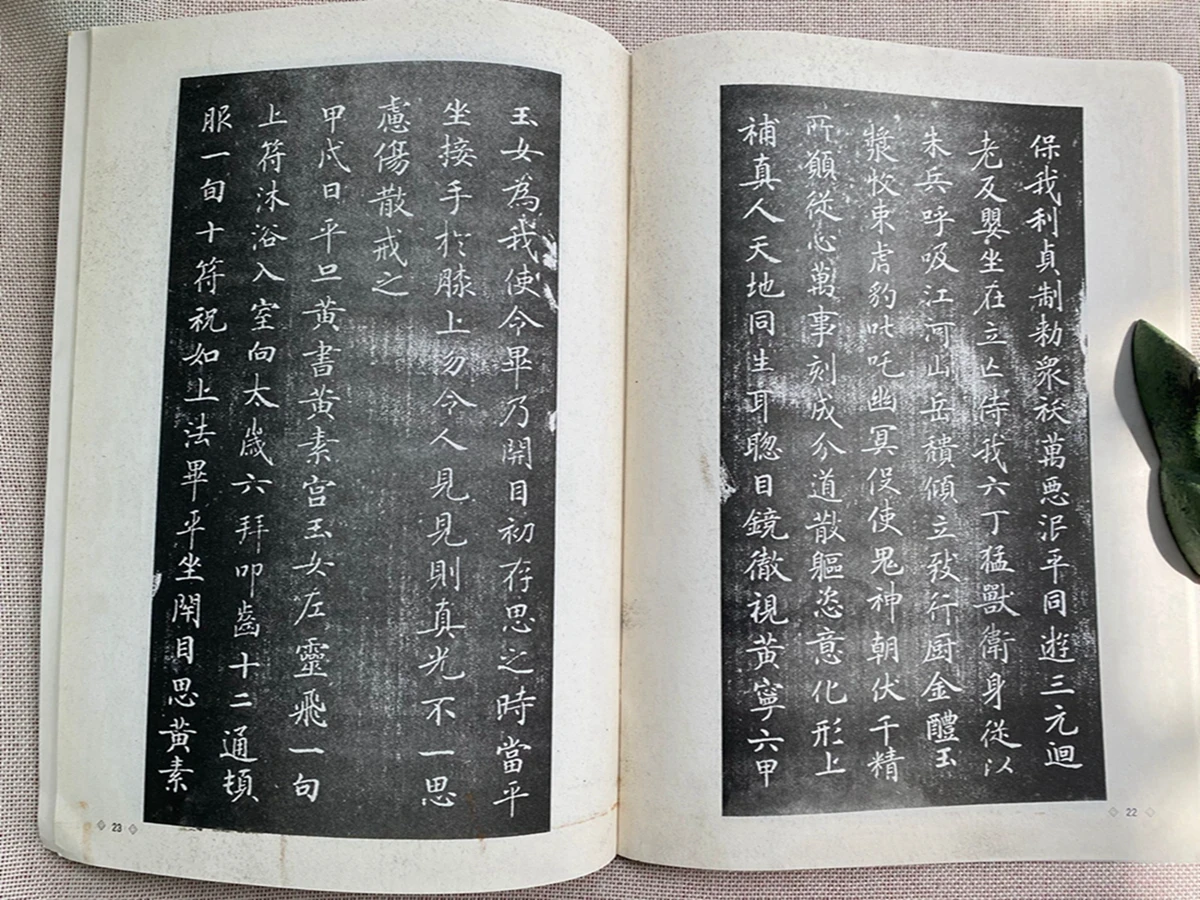 保我利貞制勑衆祅萬悪泯平同遊三元迴
老反嬰坐在立亡侍我六丁猛獸衛身從以
朱兵呼吸江河山岳穨傾立致行厨金醴玉
漿收束虎豹叱吒幽冥役使鬼神朝伏千精
所願從心萬事刻成分道散軀恣意化形上
補真人天地同生耳聦目鏡徹視黃寧六甲
22
玉女為我使令畢乃開目初存思之時當平
坐接手於膝上勿令人見見則真光不一思
慮傷散戒之
甲戌日平旦黃書黃素宮玉女左靈飛一旬
上符沐浴入室向太歲六拜叩齒十二通頓
服一旬十符祝如上法畢平坐閇目思黃素
23